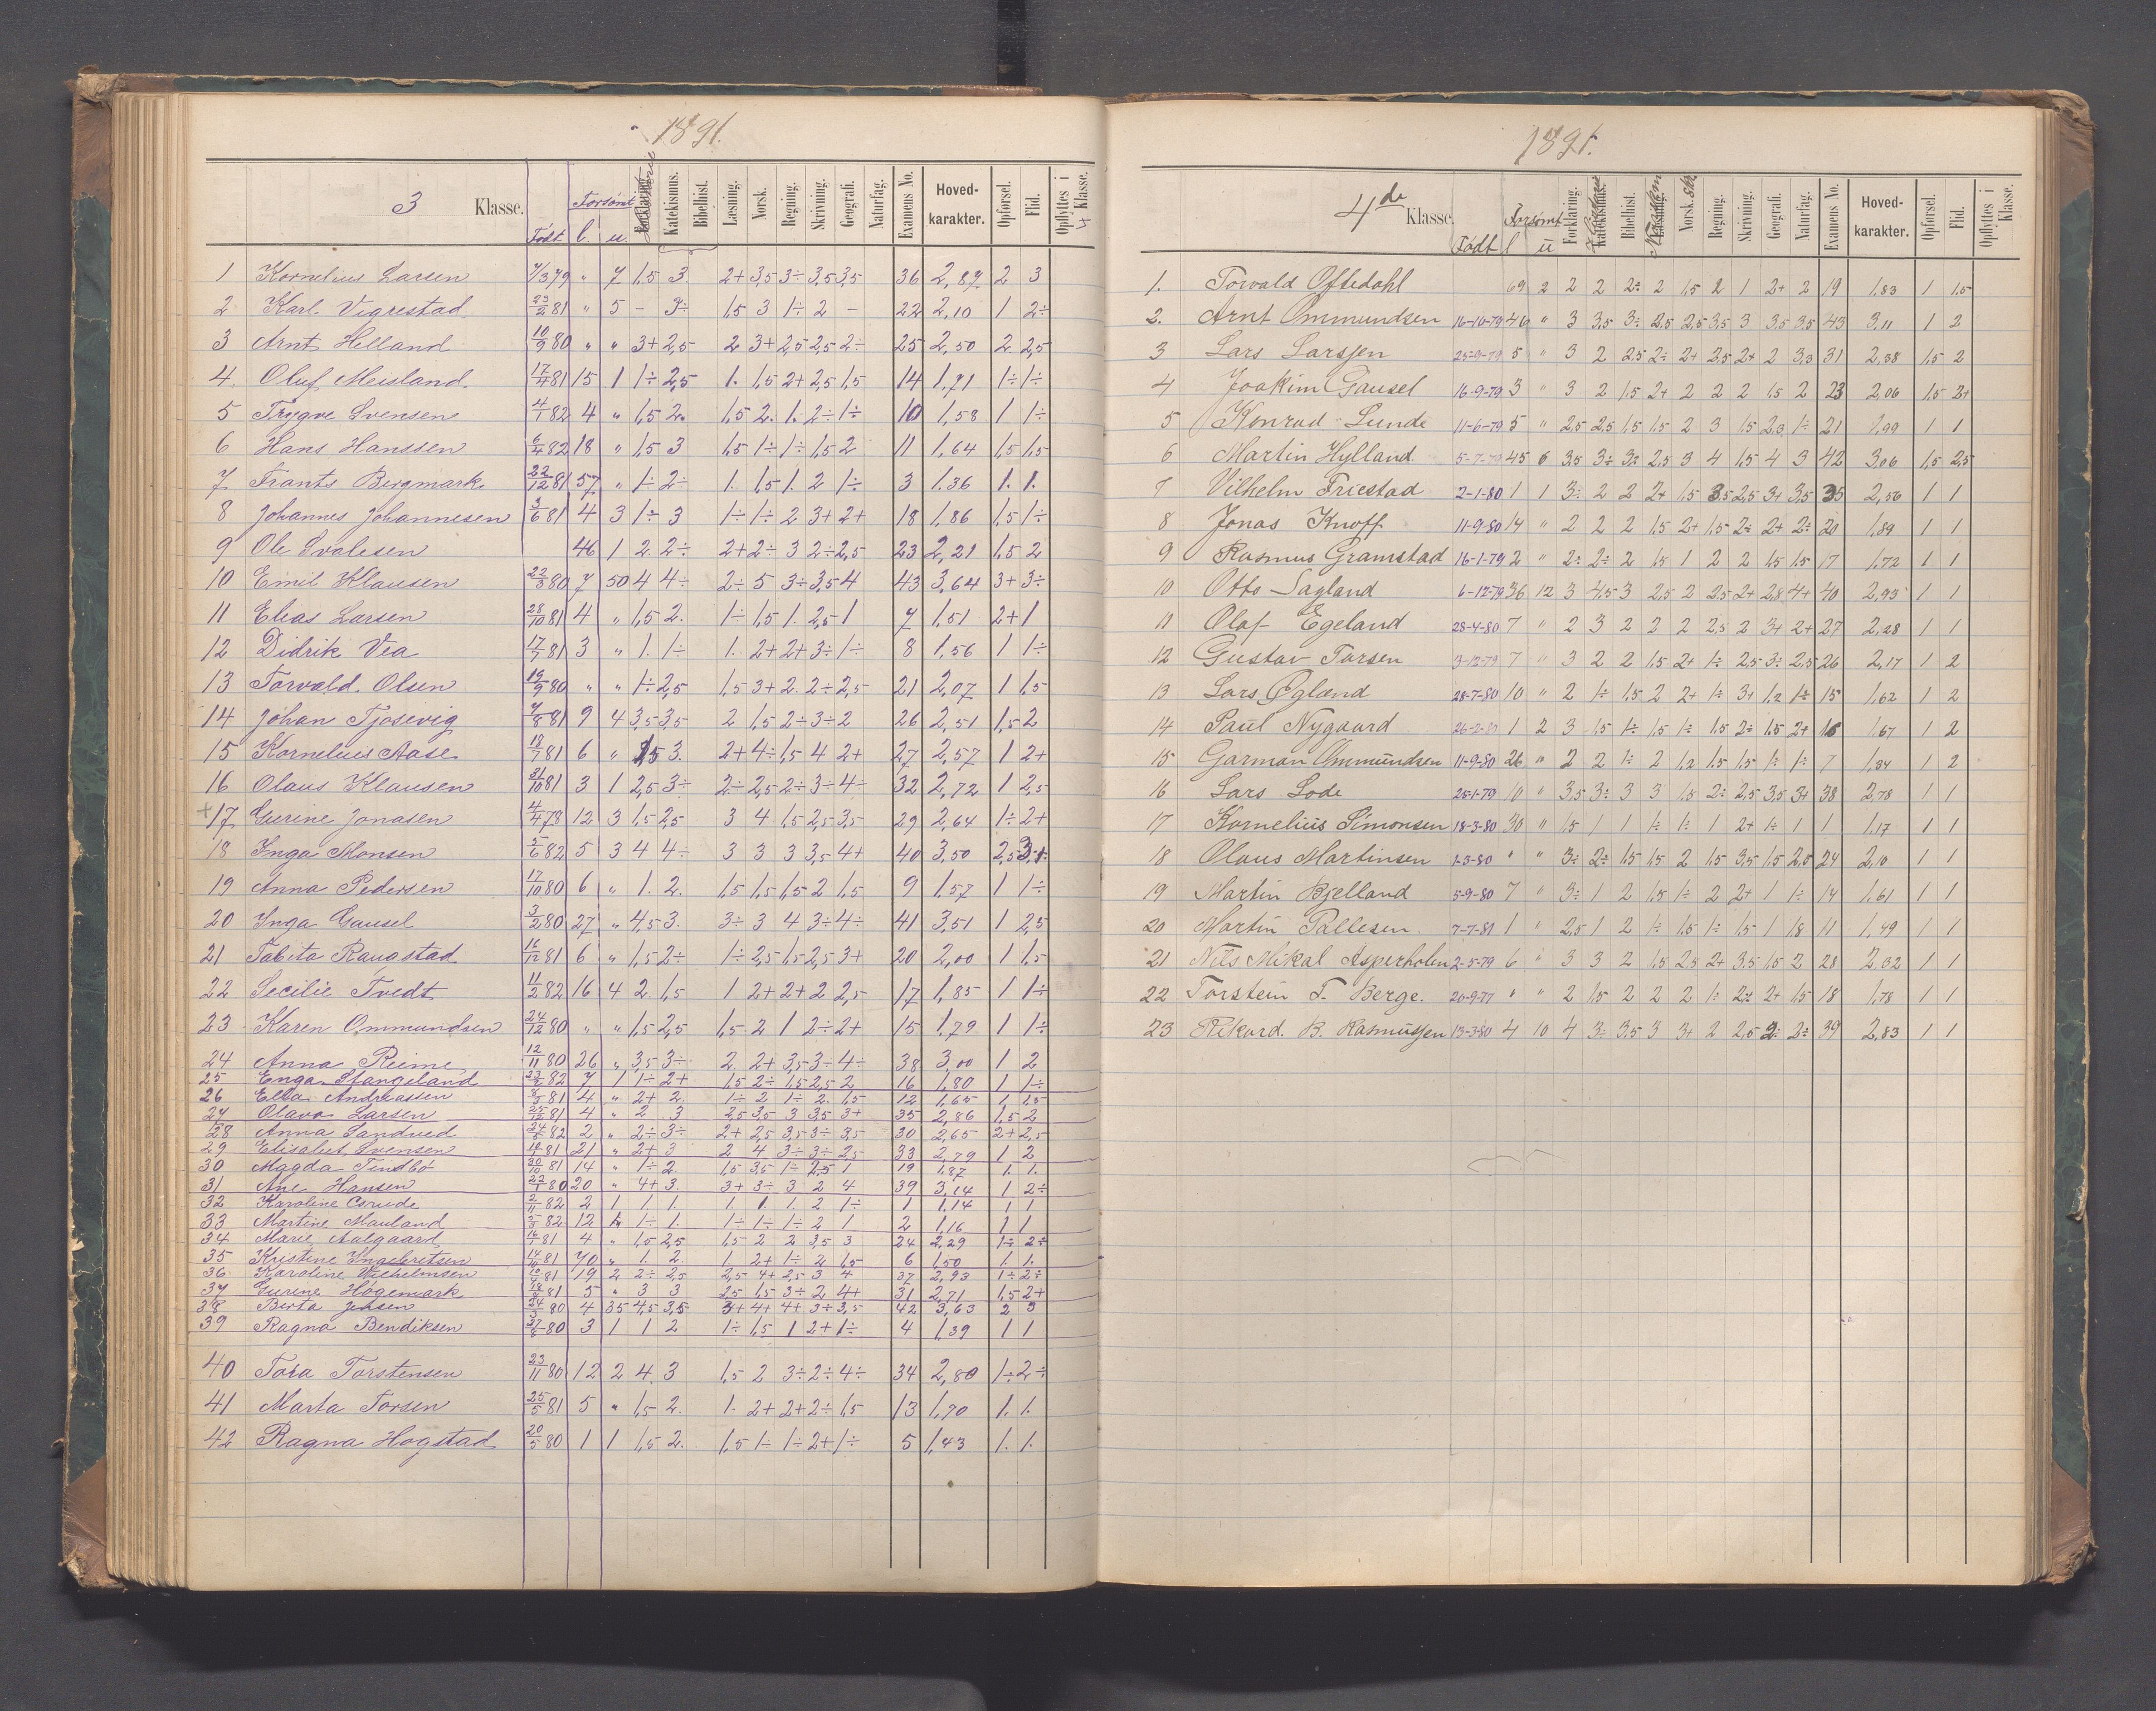 1891.
3 Klasse.
Født
Forsømt
l. u.
Katekismus.
Bibelhist.
Læsning.
Norsk.
Regning.
Skrivning.
Geografi.
Naturfag.
Examens No.
Hoved-karakter.
Opførsel.
Flid.
Opflyttes i 4 Klasse.
1 Kornelius Larsen 7/3 79 " 7 1,5 3 2+ 3,5 3÷ 3,5 3,5 36 2,87 2 3
2 Karl Vigrestad 23/2 81 " 5 – 3÷ 1,5 3 1÷ 2 – 22 2,10 1 2÷
3 Arnt Helland 10/9 80 " " 3+ 2,5 2 3+ 2,5 2,5 2÷ 25 2,50 2 2,5
4 Oluf Meisland 17/4 81 15 1 1÷ 2,5 1. 1,5 2+ 2,5 1,5 14 1,71 1÷ 1÷
5 Trygve Svensen 4/1 82 4 " 1,5 2. 1,5 2. 1. 2÷ 1÷ 10 1,58 1 1÷
6 Hans Hanssen 6/4 82 18 " 1,5 3 1,5 1÷ 1÷ 1,5 2 11 1,64 1,5 1,5
7 Frants Bergmark 22/12 81 57 " 1÷ 2÷ 1. 1,5 1. 2 1÷ 3 1,36 1. 1.
8 Johannes Johannesen 3/6 81 4 3 1÷ 3 1÷ 1÷ 2 3+ 2+ 18 1,86 1,5 1÷
9 Ole Svalesen 46 1 2 2÷ 2+ 2÷ 3 2÷ 2,5 23 2,21 1,5 2
10 Emil Klausen 22/3 80 7 50 4 4÷ 2÷ 5 3÷ 3,5 4 43 3,64 3+ 3÷
11 Elias Larsen 28/10 81 4 " 1,5 2. 1÷ 1,5 1. 2,5 1 7 1,51 2+ 1
12 Didrik Vea 17/7 81 3 " 1. 1÷ 1. 2+ 2+ 3÷ 1÷ 8 1,56 1 1÷
13 Torvald Olsen 19/9 80 " " 1÷ 2,5 1,5 3+ 2. 2÷ 2,5 21 2,07 1 1,5
14 Johan Tjosevig 7/8 81 9 4 3,5 3,5 2 1,5 2÷ 3÷ 2 26 2,51 1,5 2
15 Kornelius Aase 18/7 81 6 " 1,5 3. 2+ 4÷ 1,5 4 2+ 27 2,57 1 2+
16 Olaus Klausen 31/10 81 3 1 2,5 3÷ 2÷ 2,5 2÷ 3÷ 4÷ 32 2,72 1 2,5
+17 Gurine Jonasen 4/4 78 12 3 1,5 2,5 3 4 1,5 2,5 3,5 29 2,64 1÷ 2+
18 Inga Monsen 5/6 82 5 3 4 4÷ 3 3 3 3,5 4+ 40 3,50 2,5
19 Anna Pedersen 17/10 80 6 " 1. 2. 1,5 1,5 1,5 2 1,5 9 1,57 1 1÷
20 Inga Gausel 3/2 80 27 " 4,5 3. 3÷ 3 4 3÷ 4÷ 41 3,51 1 2,5
21 Tabita Raugstad 16/12 81 6 " 1,5 2÷ 1÷ 2,5 1,5 2,5 3+ 20 2,00 1 1,5
22 Secilie Tvedt 11/2 82 16 4 2 1,5 1 2+ 2+ 2 2,5 17 1,85 1 1÷
23 Karen Ommundsen 24/12 80 " " 1,5 2,5 1,5 2 1 2÷ 2+ 15 1,79 1 1÷
24 Anna Reime 12/11 80 26 " 3,5 3÷ 2 2+ 3,5 3÷ 4÷ 38 3,00 1 2
25 Enga Stangeland 82 7 1 1÷ 2+ 1,5 2÷ 1,5 2,5 2 16 1,80 1 1÷
26 Ella Andreassen 81 4 " 2+ 2. 1÷ 2 1÷ 2. 1,5 12 1,65 1 1,5
27 Olava Larsen 81 4 " 2 3 2,5 3,5 3 3,5 3+ 35 2,86 1,5 2
28 Anna Sandved 82 2 " 2÷ 3÷ 2+ 2,5 3,5 3÷ 3,5 30 2,65 2+ 2,5
29 Elisabet Svensen 81 21 " 2+ 3 2 4 3÷ 3÷ 2,5 33 2,79 1 2
30 Magda Tindbö 30/10 81 14 " 1÷ 2. 1,5 3,5 1÷ 2,5 1 19 1,87 1. 1.
31 Ane Hansen 80 20 " 4+ 3. 3+ 3÷ 3 2 4 39 3,14 1 2÷
32 Karoline 82 2 1 1. 1. 1. 1. 1. 2 1÷ 1 1,14 1 1
33 Martine Mauland 82 12 1÷ 1. 1÷ 1÷ 1÷ 2 1 2 1,16 1 1
34 Marie Aalgaard 81 4 " 1,5 2,5 1,5 2 2 3,5 3 24 2,29 1÷ 2÷
35 Kristine Ingebretsen 81 70 " 1. 2. 1. 2+ 1÷ 2 1,5 6 1,50 1. 1.
36 Karoline Wilhelmsen 81 19 2 2÷ 2,5 2,5 4+ 2,5 3 4 37 2,93 1÷ 2÷
37 Gurine Høgemark 81 5 " 3 3 2,5 1,5 3÷ 2 4+ 31 2,71 1,5 2+
38 Berta Jensen 80 4 35 4,5 3,5 3+ 4+ 4+ 3+ 3,5 42 3,63 2 3
39 Ragna Bendiksen 80 3 1 1 2 1÷ 1,5 1 2+ 1÷ 4 1,39 1 1
40 Tora Torstensen 23/11 80 12 2 4 3 1,5 2 3÷ 2÷ 4÷ 34 2,80 1÷ 2÷
41 Marta Torsen 25/5 81 5 " 1,5 2. 1. 2+ 2+ 2÷ 1,5 13 1,70 1. 1.
42 Ragna Hogstad 20/5 80 1 1 1,5 2. 1,5 1÷ 1÷ 2+ 1÷ 5 1,43 1. 1.
1891.
4de Klasse.
Født
Forsømt
l u
Forklaring.
Katekismus.
Bibelhist.
Læsning.
Norsk.
Regning.
Skrivning.
Geografi.
Naturfag.
Examens No.
Hoved-karakter.
Opførsel.
Flid.
Opflyttes i Klasse.
1. Torvald Oftedahl 69 2 2 2 2÷ 2 1,5 2 1 2+ 2 19 1,83 1 1,5
2. Arnt Ommundsen 16-10-79 46 " 3 3,5 3÷ 2,5 2,5 3,5 3 3,5 3,5 43 3,11 1 2
3 Lars Larssen 25-9-79 5 " 3 2 2,5 2÷ 2+ 2,5 2+ 2 3,3 31 2,38 1,5 2
4 Joakim Gausel 16-9-79 3 " 3 2 1,5 2+ 2 2 2 1,5 2 23 2,06 1,5 2+
5 Konrad Lunde 11-6-79 5 " 2,5 2,5 1,5 1,5 2 3 1,5 2,3 1÷ 21 1,99 1 1
6 Martin Hylland 5-7-79 45 6 3,5 3÷ 3÷ 2,5 3 4 1,5 4 3 42 3,06 1,5 2,5
7 Vilhelm Friestad 2-1-80 1 1 3÷ 2 2 2+ 1,5 3,5 2,5 3+ 3,5 35 2,56 1 1
8 Jonas Knoff 11-9-80 14 " 2 2 2 1,5 2+ 1,5 2÷ 2+ 2÷ 20 1,89 1 1
9 Rasmus Gramstad 16-1-79 2 " 2÷ 2÷ 2 1,5 1 2 2 1,5 1,5 17 1,72 1 1
10 Otto Sagland 6-12-79 36 12 3 4,5 3 2,5 2 2,5 2+ 2,8 4+ 40 2,93 1 1
11 Olaf Egeland 28-4-80 7 " 2 3 2 2 2 2,5 2 3+ 2+ 27 2,28 1 1
12 Gustav Torsen 3-12-79 7 " 3 2 2 1,5 2+ 1÷ 2,5 3÷ 2,5 26 2,17 1 2
13 Lars Egland 28-7-80 10 " 2 1÷ 1,5 2 2+ 1÷ 3+ 1,2 1÷ 15 1,62 1 2
14 Paul Nygaard 26-2-80 1 2 3 1,5 1÷ 1,5 1÷ 1,5 2÷ 1,5 2+ 16 1,67 1 2
15 Garman Ommundsen 11-9-80 26 " 2 2 1÷ 2 1,2 1,5 1,5 1÷ 1÷ 7 1,34 1 2
16 Lars Lode 25-1-79 10 " 3,5 3÷ 3 3 1,5 2÷ 2,5 3,5 3+ 38 2,78 1 1
17 Kornelius Simonsen 18-3-80 30 " 1,5 1 1 1÷ 1÷ 1 2+ 1÷ 1 1 1,17 1 1
18 Olaus Martinsen 1-3-80 " " 3÷ 2÷ 1,5 1,5 2 1,5 3,5 1,5 2,5 24 2,10 1 1
19 Martin Bjelland 5-9-80 7 " 3÷ 1 2 1,5 1÷ 2 2+ 1 1÷ 14 1,61 1 1
20 Martin Pallesen 7-7-81 1 " 2,5 1 2 1÷ 1,5 1÷ 1,5 1 1,8 11 1,49 1 1
21 Nils Mikal Asperholen 2-5-79 6 " 3 3 2 1,5 2,5 2+ 3,5 1,5 2 28 2,32 1 1
22 Torstein T. Berge. 20-9-79 " " 2 1,5 2 2 2 1÷ 2÷ 2+ 1,5 18 1,78 1 1
23 Rikard. B. Rasmussen 13-3-80 4 10 4 3÷ 3,5 3 3+ 2 2,5 2÷ 2÷ 39 2,83 1 1